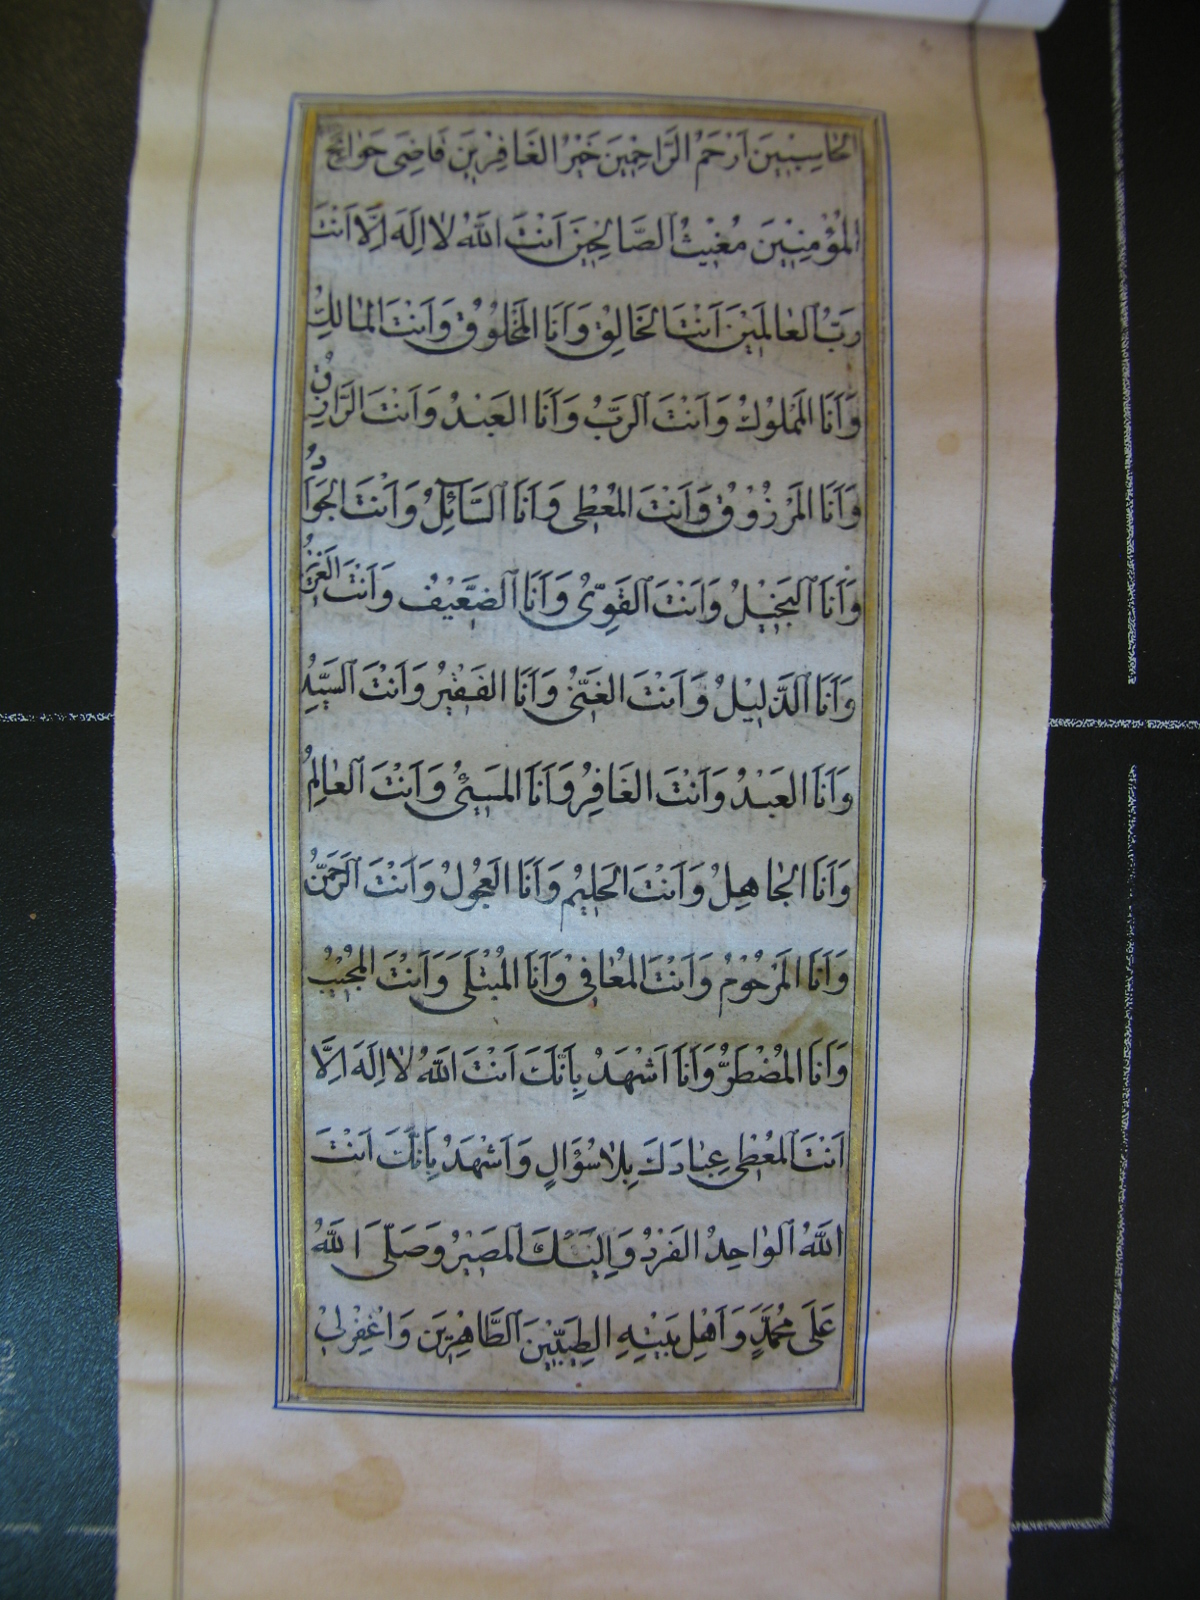 الحَاسِبِيْنَ اَرْحَمُ الرَّاحِمِيْنَ خَيْرُ الغَافِرِيْنَ قَاضِىَ حَوَائِجِ
المُؤْمِنِيْنَ مُغِيْثُ الصَّالِحِيْنَ اَنْتَ اللّٰهُ لَا اِلٰهَ اِلَّا اَنْتَ
رَبُّ العَالَمِيْنَ اَنْتَ الخَالِقُ وَاَنَا المَخْلُوْقُ وَاَنْتَ المَالِكُ
وَاَنَا المَمْلُوْكُ وَاَنْتَ الرَّبُّ وَاَنَا العَبْدُ وَاَنْتَ الرَّازِقُ
وَاَنَا المَرْزُوْقُ وَاَنْتَ المُعْطِى وَاَنَا السَّائِلُ وَاَنْتَ الجَوَادُ
وَاَنَا البَخِيْلُ وَاَنْتَ القَوِىُّ وَاَنَا الضَّعِيْفُ وَاَنْتَ العَزِيْزُ
وَاَنَا الذَّلِيْلُ وَاَنْتَ الغَنِىُّ وَاَنَا الفَقِيْرُ وَاَنْتَ السَيِّدُ
وَاَنَا العَبْدُ وَاَنْتَ الغَافِرُ وَاَنَا المُسِيْئُ وَاَنْتَ العَالِمُ
وَاَنَا الجَاهِلُ وَاَنْتَ الحَلِيْمُ وَاَنَا العَجُوْلُ وَاَنْتَ الرَّحْمٰنُ
وَاَنَا المَرْحُوْمُ وَاَنْتَ المُعَافِىْ وَاَنَا المُبْتَلَى وَاَنْتَ المُجِيْبُ
وَاَنَا المُضْطَرُّ وَاَنَا اَشْهَدُ بِاَنَّكَ اَنْتَ اللّٰهُ لَا اِلٰهَ اِلَّا
اَنْتَ المُعْطِى عِبَادَكَ بِلَا سُؤَالٍ وَاَشْهَدُ بِاَنَّكَ اَنْتَ
اللّٰهُ الوَاحِدُ الفَرْدُ وَاِلَيْكَ المَصِيْرُ وَصَلَّى اللّٰهُ
عَلَى مُحَمَّدٍ وَاَهْلِ بَيْتِهِ الطَيِّبِيْنَ الطَّاهِرِيْنَ وَاغْفِرْلِىْ